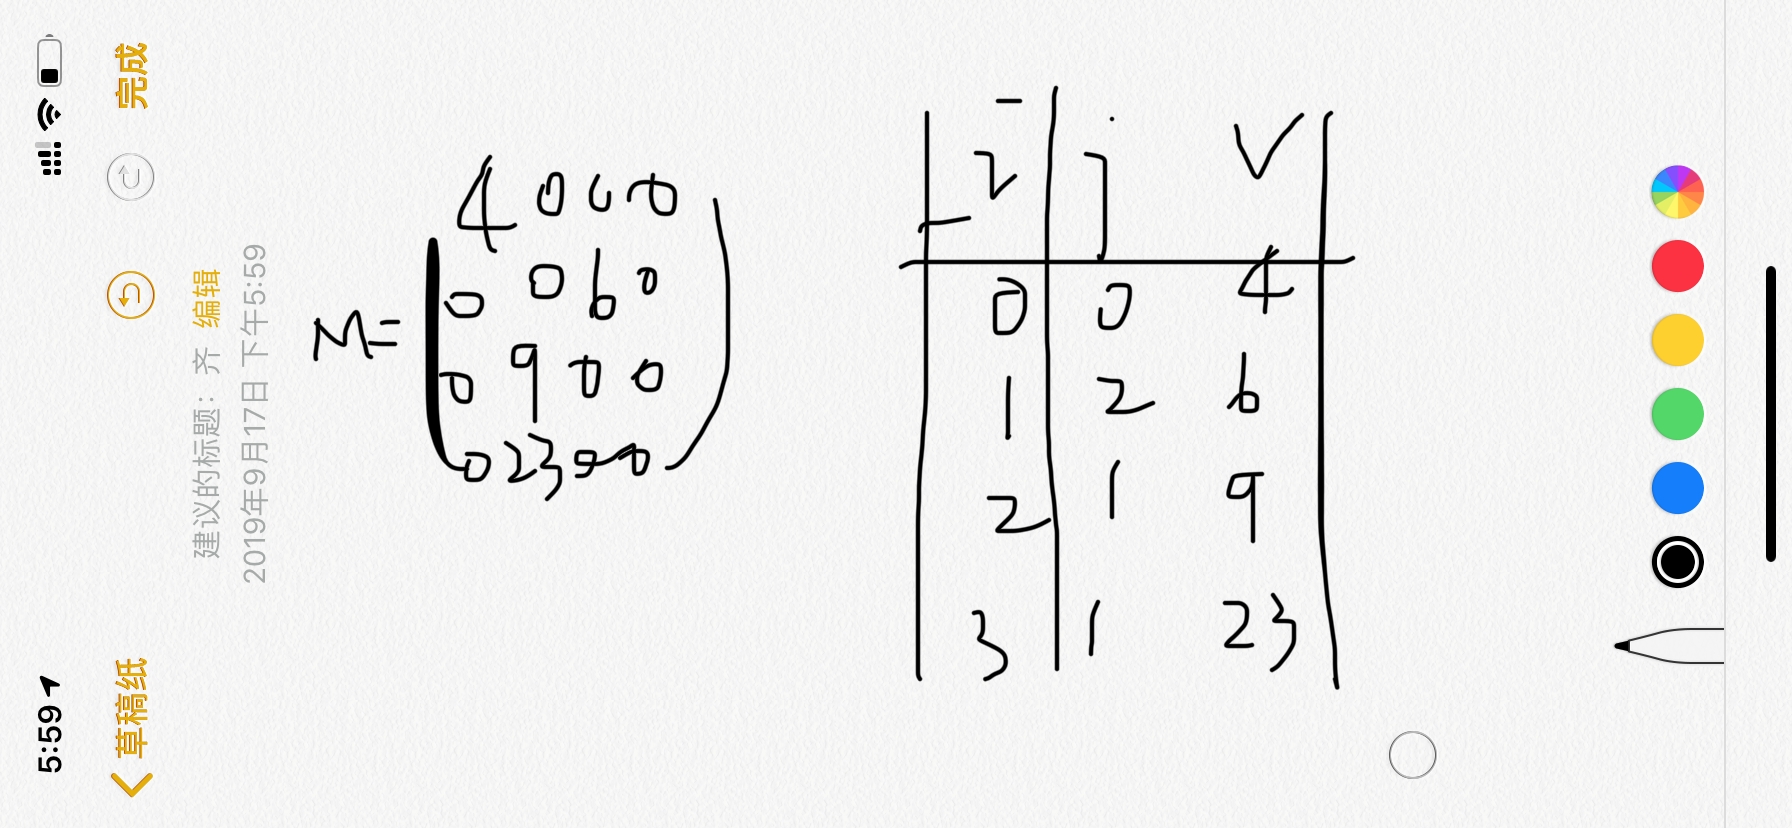 5:59
草稿纸
完成
2019年9月17日 下午5:59
建议的标题：齐 编辑
M=
4 0 0 0
0 0 6 0
0 9 0 0
0 23 0 0
i j v
0 0 4
1 2 6
2 1 9
3 1 23